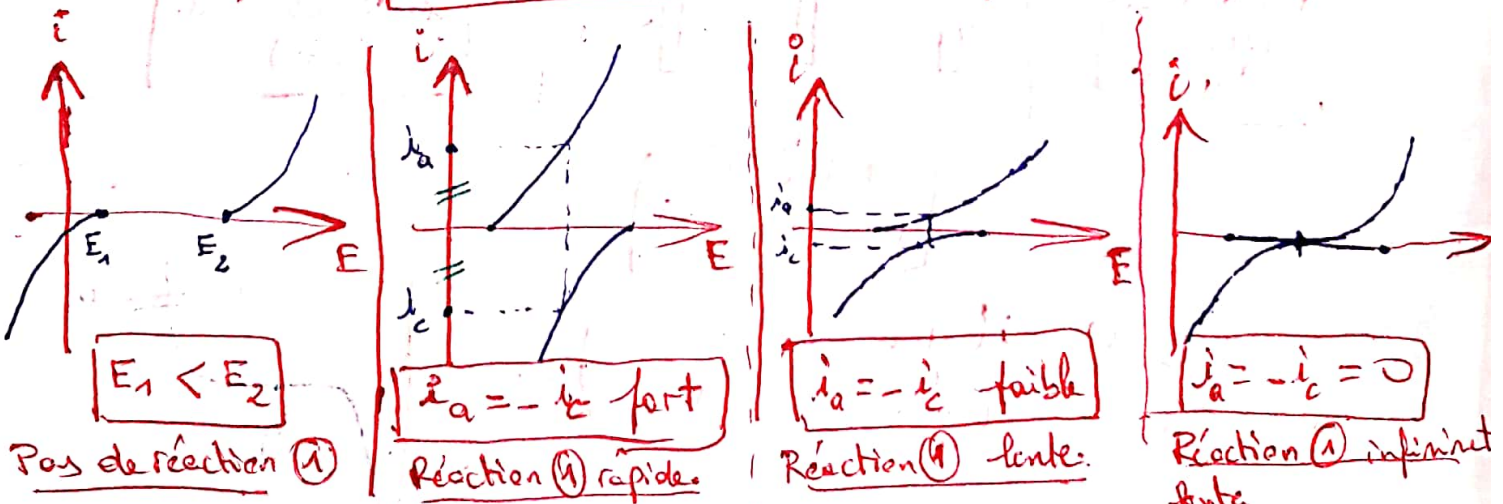 i
E₁
E₂
E
E₁ < E₂
Pas de réaction ①
i
iₐ
i꜀
E
iₐ = - i꜀ fort
Réaction ① rapide.
i
iₐ
i꜀
E
iₐ = - i꜀ faible
Réaction ① lente.
i
iₐ = - i꜀ = 0
Réaction ① infinimt
lente